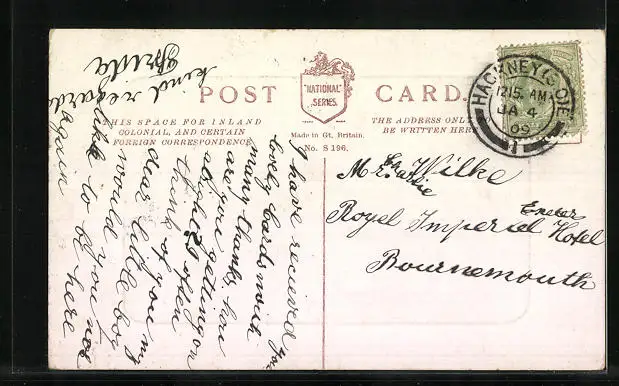 POST CARD.
"NATIONAL"
SERIES.
THIS SPACE FOR INLAND
COLONIAL, AND CERTAIN
FOREIGN CORRESPONDENCE
Made in Gt. Britain.
No. S 196.
THE ADDRESS ONLY TO
BE WRITTEN HERE
HACKNEY
12.15. AM
JA 4
09
1
Wilke
Royal Imperial Exeter Hotel
Bournemouth
I have received you
lovely cards with
many thanks how
are you getting on
always often
think of
you my
dear little boy
would
like to
be here
again
kind regards